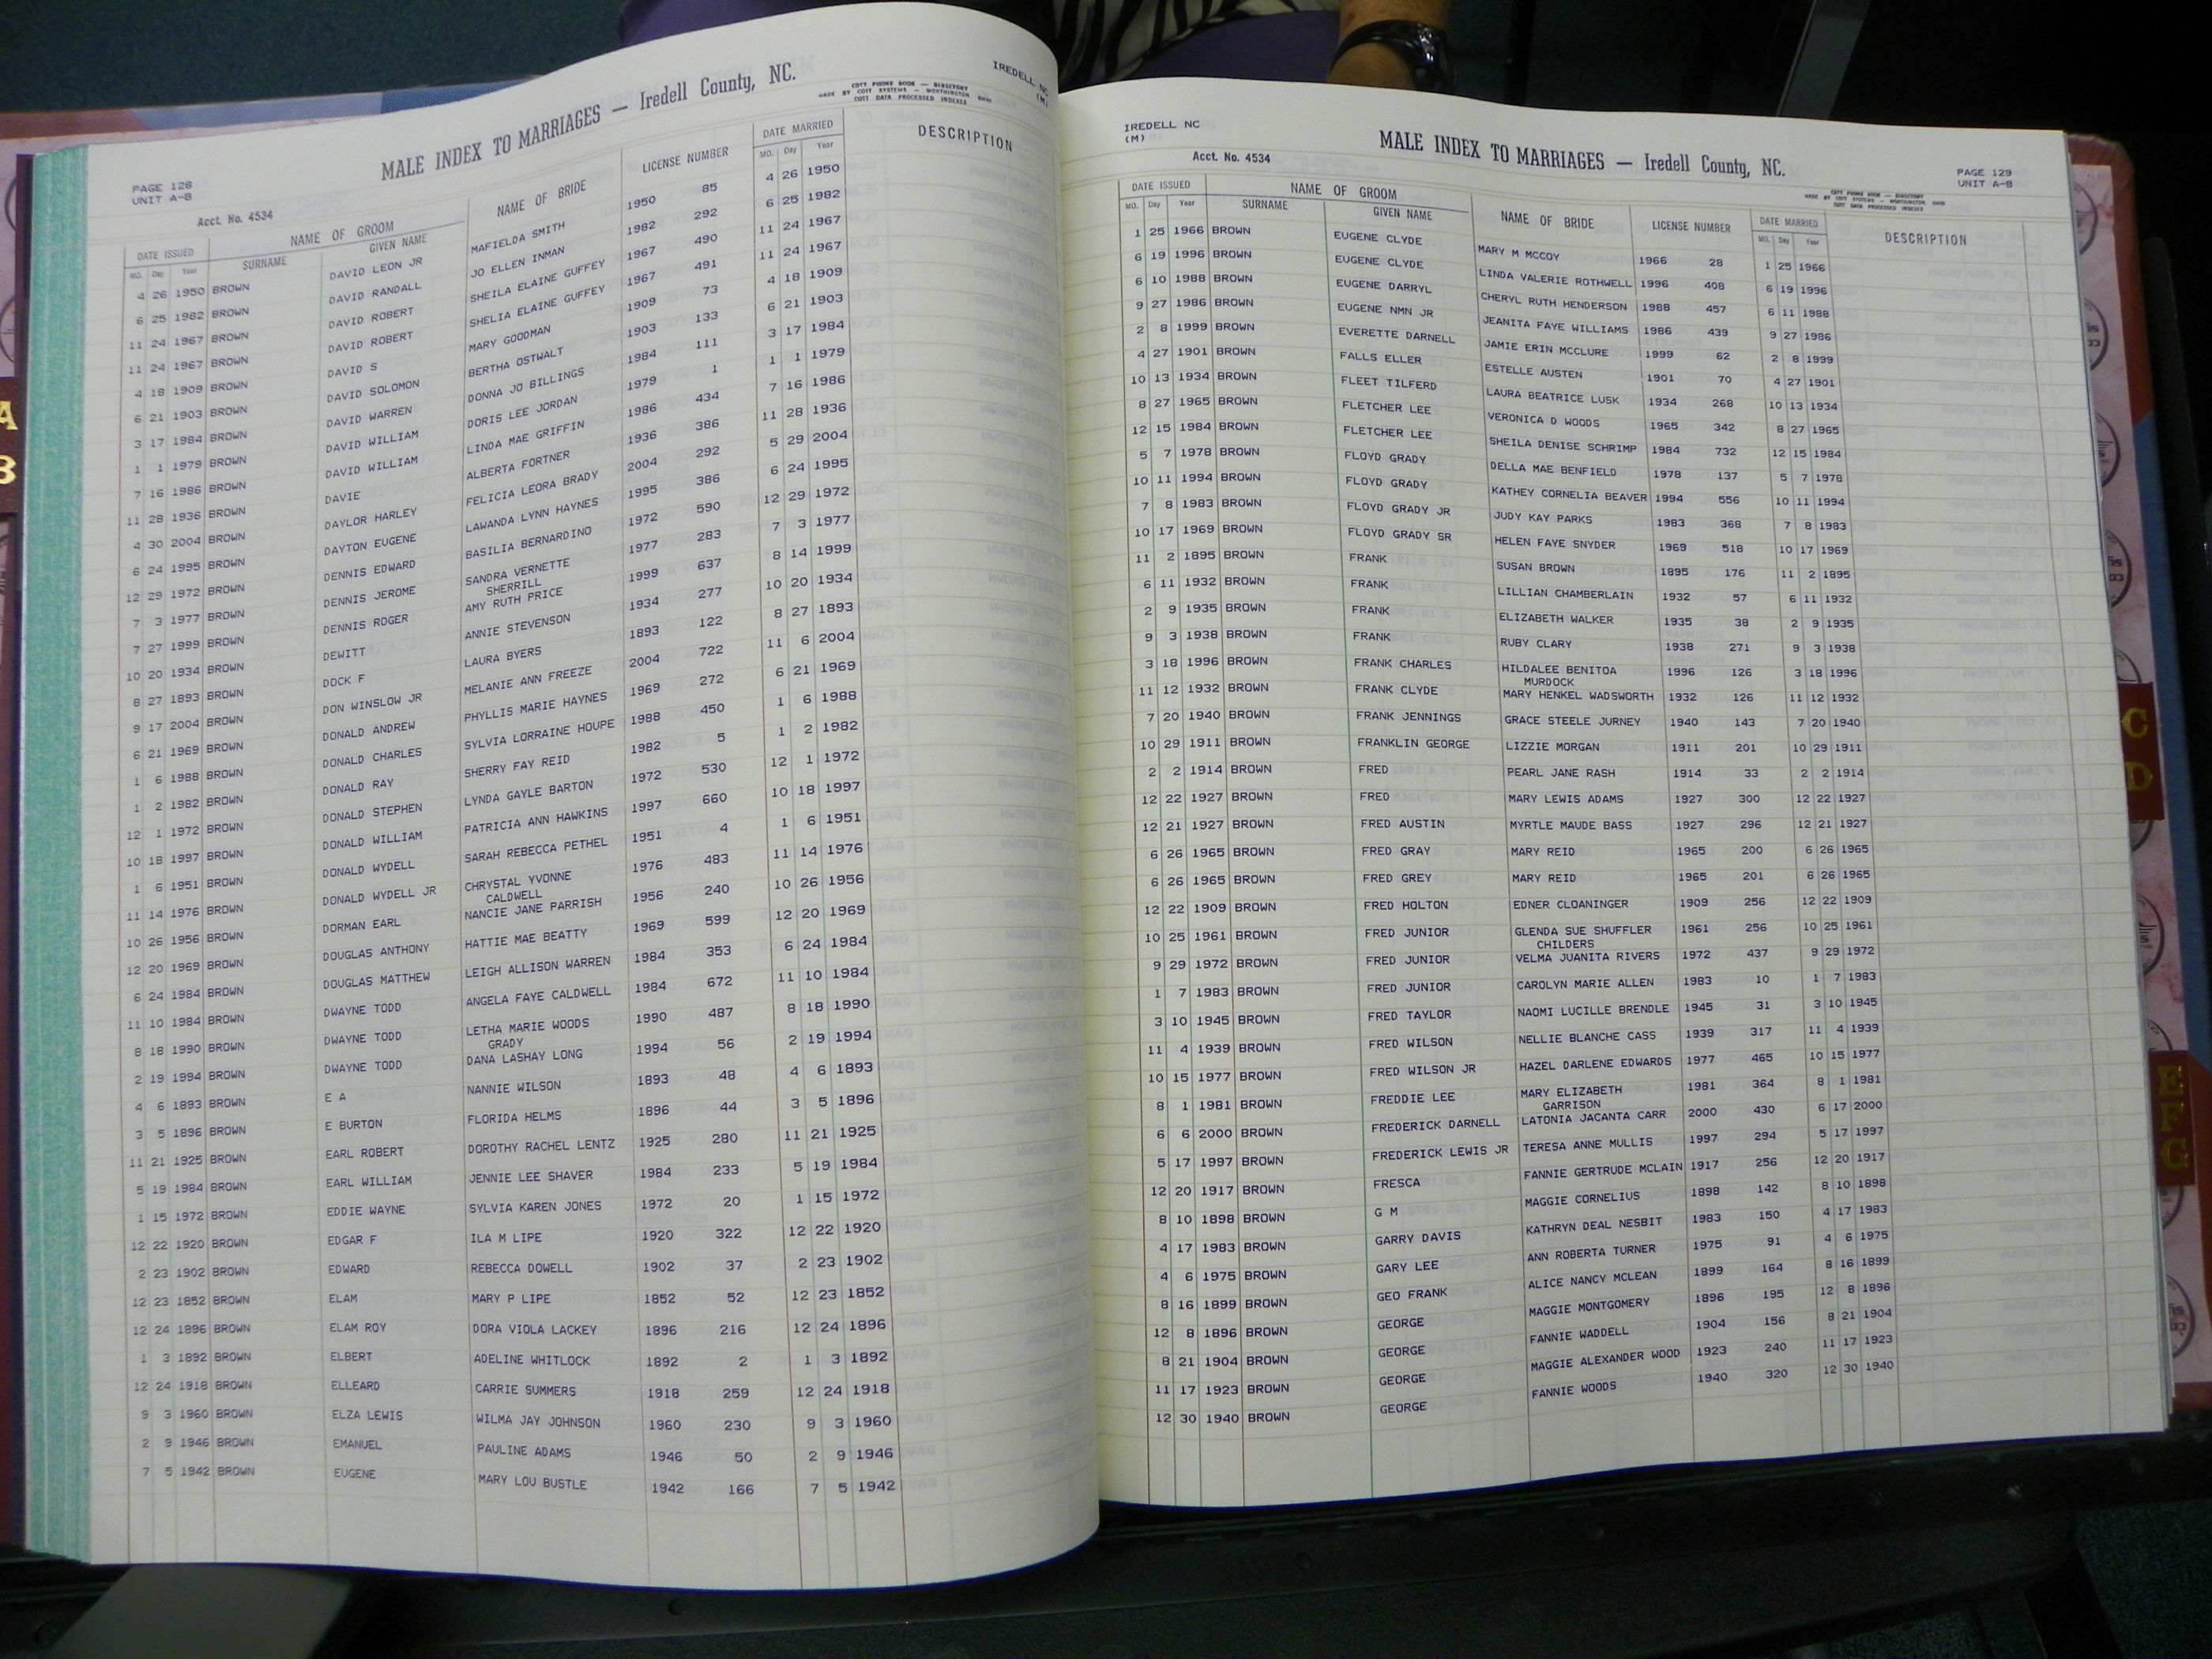 MALE INDEX TO MARRIAGES — Iredell County, NC.
IREDELL NC
(M)
COTT PHONE BOOK — DIRECTORY
MADE BY COTT SYSTEMS — WORTHINGTON OHIO
COTT DATA PROCESSED INDEXES
PAGE 128
UNIT A-B
Acct. No. 4534
DATE ISSUED NAME OF GROOM NAME OF BRIDE LICENSE NUMBER DATE MARRIED DESCRIPTION
MO. Day Year SURNAME GIVEN NAME MO. Day Year
4 26 1950 BROWN DAVID LEON JR MAFIELDA SMITH 1950 85 4 26 1950
6 25 1982 BROWN DAVID RANDALL JO ELLEN INMAN 1982 292 6 25 1982
11 24 1967 BROWN DAVID ROBERT SHEILA ELAINE GUFFEY 1967 490 11 24 1967
11 24 1967 BROWN DAVID ROBERT SHELIA ELAINE GUFFEY 1967 491 11 24 1967
4 18 1909 BROWN DAVID S MARY GOODMAN 1909 73 4 18 1909
6 21 1903 BROWN DAVID SOLOMON BERTHA OSTWALT 1903 133 6 21 1903
3 17 1984 BROWN DAVID WARREN DONNA JO BILLINGS 1984 111 3 17 1984
1 1 1979 BROWN DAVID WILLIAM DORIS LEE JORDAN 1979 1 1 1 1979
7 16 1986 BROWN DAVID WILLIAM LINDA MAE GRIFFIN 1986 434 7 16 1986
11 28 1936 BROWN DAVIE ALBERTA FORTNER 1936 386 11 28 1936
4 30 2004 BROWN DAYLOR HARLEY FELICIA LEORA BRADY 2004 292 5 29 2004
6 24 1995 BROWN DAYTON EUGENE LAWANDA LYNN HAYNES 1995 386 6 24 1995
12 29 1972 BROWN DENNIS EDWARD BASILIA BERNARDINO 1972 590 12 29 1972
7 3 1977 BROWN DENNIS JEROME SANDRA VERNETTE 1977 283 7 3 1977
SHERRILL
7 27 1999 BROWN DENNIS ROGER AMY RUTH PRICE 1999 637 8 14 1999
10 20 1934 BROWN DEWITT ANNIE STEVENSON 1934 277 10 20 1934
8 27 1893 BROWN DOCK F LAURA BYERS 1893 122 8 27 1893
9 17 2004 BROWN DON WINSLOW JR MELANIE ANN FREEZE 2004 722 11 6 2004
6 21 1969 BROWN DONALD ANDREW PHYLLIS MARIE HAYNES 1969 272 6 21 1969
1 6 1988 BROWN DONALD CHARLES SYLVIA LORRAINE HOUPE 1988 450 1 6 1988
1 2 1982 BROWN DONALD RAY SHERRY FAY REID 1982 5 1 2 1982
12 1 1972 BROWN DONALD STEPHEN LYNDA GAYLE BARTON 1972 530 12 1 1972
10 18 1997 BROWN DONALD WILLIAM PATRICIA ANN HAWKINS 1997 660 10 18 1997
1 6 1951 BROWN DONALD WYDELL SARAH REBECCA PETHEL 1951 4 1 6 1951
11 14 1976 BROWN DONALD WYDELL JR CHRYSTAL YVONNE 1976 483 11 14 1976
CALDWELL
10 26 1956 BROWN DORMAN EARL NANCIE JANE PARRISH 1956 240 10 26 1956
12 20 1969 BROWN DOUGLAS ANTHONY HATTIE MAE BEATTY 1969 599 12 20 1969
6 24 1984 BROWN DOUGLAS MATTHEW LEIGH ALLISON WARREN 1984 353 6 24 1984
11 10 1984 BROWN DWAYNE TODD ANGELA FAYE CALDWELL 1984 672 11 10 1984
8 18 1990 BROWN DWAYNE TODD LETHA MARIE WOODS 1990 487 8 18 1990
GRADY
2 19 1994 BROWN DWAYNE TODD DANA LASHAY LONG 1994 56 2 19 1994
4 6 1893 BROWN E A NANNIE WILSON 1893 48 4 6 1893
3 5 1896 BROWN E BURTON FLORIDA HELMS 1896 44 3 5 1896
11 21 1925 BROWN EARL ROBERT DOROTHY RACHEL LENTZ 1925 280 11 21 1925
5 19 1984 BROWN EARL WILLIAM JENNIE LEE SHAVER 1984 233 5 19 1984
1 15 1972 BROWN EDDIE WAYNE SYLVIA KAREN JONES 1972 20 1 15 1972
12 22 1920 BROWN EDGAR F ILA M LIPE 1920 322 12 22 1920
2 23 1902 BROWN EDWARD REBECCA DOWELL 1902 37 2 23 1902
12 23 1852 BROWN ELAM MARY P LIPE 1852 52 12 23 1852
12 24 1896 BROWN ELAM ROY DORA VIOLA LACKEY 1896 216 12 24 1896
1 3 1892 BROWN ELBERT ADELINE WHITLOCK 1892 2 1 3 1892
12 24 1918 BROWN ELLEARD CARRIE SUMMERS 1918 259 12 24 1918
9 3 1960 BROWN ELZA LEWIS WILMA JAY JOHNSON 1960 230 9 3 1960
2 9 1946 BROWN EMANUEL PAULINE ADAMS 1946 50 2 9 1946
7 5 1942 BROWN EUGENE MARY LOU BUSTLE 1942 166 7 5 1942
IREDELL NC
(M)
MALE INDEX TO MARRIAGES — Iredell County, NC.
PAGE 129
UNIT A-B
Acct. No. 4534
COTT PHONE BOOK — DIRECTORY
MADE BY COTT SYSTEMS — WORTHINGTON OHIO
COTT DATA PROCESSED INDEXES
DATE ISSUED NAME OF GROOM NAME OF BRIDE LICENSE NUMBER DATE MARRIED DESCRIPTION
MO. Day Year SURNAME GIVEN NAME MO. Day Year
1 25 1966 BROWN EUGENE CLYDE MARY M MCCOY 1966 28 1 25 1966
6 19 1996 BROWN EUGENE CLYDE LINDA VALERIE ROTHWELL 1996 408 6 19 1996
6 10 1988 BROWN EUGENE DARRYL CHERYL RUTH HENDERSON 1988 457 6 11 1988
9 27 1986 BROWN EUGENE NMN JR JEANITA FAYE WILLIAMS 1986 439 9 27 1986
2 8 1999 BROWN EVERETTE DARNELL JAMIE ERIN MCCLURE 1999 62 2 8 1999
4 27 1901 BROWN FALLS ELLER ESTELLE AUSTEN 1901 70 4 27 1901
10 13 1934 BROWN FLEET TILFERD LAURA BEATRICE LUSK 1934 268 10 13 1934
8 27 1965 BROWN FLETCHER LEE VERONICA D WOODS 1965 342 8 27 1965
12 15 1984 BROWN FLETCHER LEE SHEILA DENISE SCHRIMP 1984 732 12 15 1984
5 7 1978 BROWN FLOYD GRADY DELLA MAE BENFIELD 1978 137 5 7 1978
10 11 1994 BROWN FLOYD GRADY KATHEY CORNELIA BEAVER 1994 556 10 11 1994
7 8 1983 BROWN FLOYD GRADY JR JUDY KAY PARKS 1983 368 7 8 1983
10 17 1969 BROWN FLOYD GRADY SR HELEN FAYE SNYDER 1969 518 10 17 1969
11 2 1895 BROWN FRANK SUSAN BROWN 1895 176 11 2 1895
6 11 1932 BROWN FRANK LILLIAN CHAMBERLAIN 1932 57 6 11 1932
2 9 1935 BROWN FRANK ELIZABETH WALKER 1935 38 2 9 1935
9 3 1938 BROWN FRANK RUBY CLARY 1938 271 9 3 1938
3 18 1996 BROWN FRANK CHARLES HILDALEE BENITOA 1996 126 3 18 1996
MURDOCK
11 12 1932 BROWN FRANK CLYDE MARY HENKEL WADSWORTH 1932 126 11 12 1932
7 20 1940 BROWN FRANK JENNINGS GRACE STEELE JURNEY 1940 143 7 20 1940
10 29 1911 BROWN FRANKLIN GEORGE LIZZIE MORGAN 1911 201 10 29 1911
2 2 1914 BROWN FRED PEARL JANE RASH 1914 33 2 2 1914
12 22 1927 BROWN FRED MARY LEWIS ADAMS 1927 300 12 22 1927
12 21 1927 BROWN FRED AUSTIN MYRTLE MAUDE BASS 1927 296 12 21 1927
6 26 1965 BROWN FRED GRAY MARY REID 1965 200 6 26 1965
6 26 1965 BROWN FRED GREY MARY REID 1965 201 6 26 1965
12 22 1909 BROWN FRED HOLTON EDNER CLOANINGER 1909 256 12 22 1909
10 25 1961 BROWN FRED JUNIOR GLENDA SUE SHUFFLER 1961 256 10 25 1961
CHILDERS
9 29 1972 BROWN FRED JUNIOR VELMA JUANITA RIVERS 1972 437 9 29 1972
1 7 1983 BROWN FRED JUNIOR CAROLYN MARIE ALLEN 1983 10 1 7 1983
3 10 1945 BROWN FRED TAYLOR NAOMI LUCILLE BRENDLE 1945 31 3 10 1945
11 4 1939 BROWN FRED WILSON NELLIE BLANCHE CASS 1939 317 11 4 1939
10 15 1977 BROWN FRED WILSON JR HAZEL DARLENE EDWARDS 1977 465 10 15 1977
8 1 1981 BROWN FREDDIE LEE MARY ELIZABETH 1981 364 8 1 1981
GARRISON
6 6 2000 BROWN FREDERICK DARNELL LATONIA JACANTA CARR 2000 430 6 17 2000
5 17 1997 BROWN FREDERICK LEWIS JR TERESA ANNE MULLIS 1997 294 5 17 1997
12 20 1917 BROWN FRESCA FANNIE GERTRUDE MCLAIN 1917 256 12 20 1917
8 10 1898 BROWN G M MAGGIE CORNELIUS 1898 142 8 10 1898
4 17 1983 BROWN GARRY DAVIS KATHRYN DEAL NESBIT 1983 150 4 17 1983
4 6 1975 BROWN GARY LEE ANN ROBERTA TURNER 1975 91 4 6 1975
8 16 1899 BROWN GEO FRANK ALICE NANCY MCLEAN 1899 164 8 16 1899
12 8 1896 BROWN GEORGE MAGGIE MONTGOMERY 1896 195 12 8 1896
8 21 1904 BROWN GEORGE FANNIE WADDELL 1904 156 8 21 1904
11 17 1923 BROWN GEORGE MAGGIE ALEXANDER WOOD 1923 240 11 17 1923
12 30 1940 BROWN GEORGE FANNIE WOODS 1940 320 12 30 1940
A
B
C
D
E
F
G